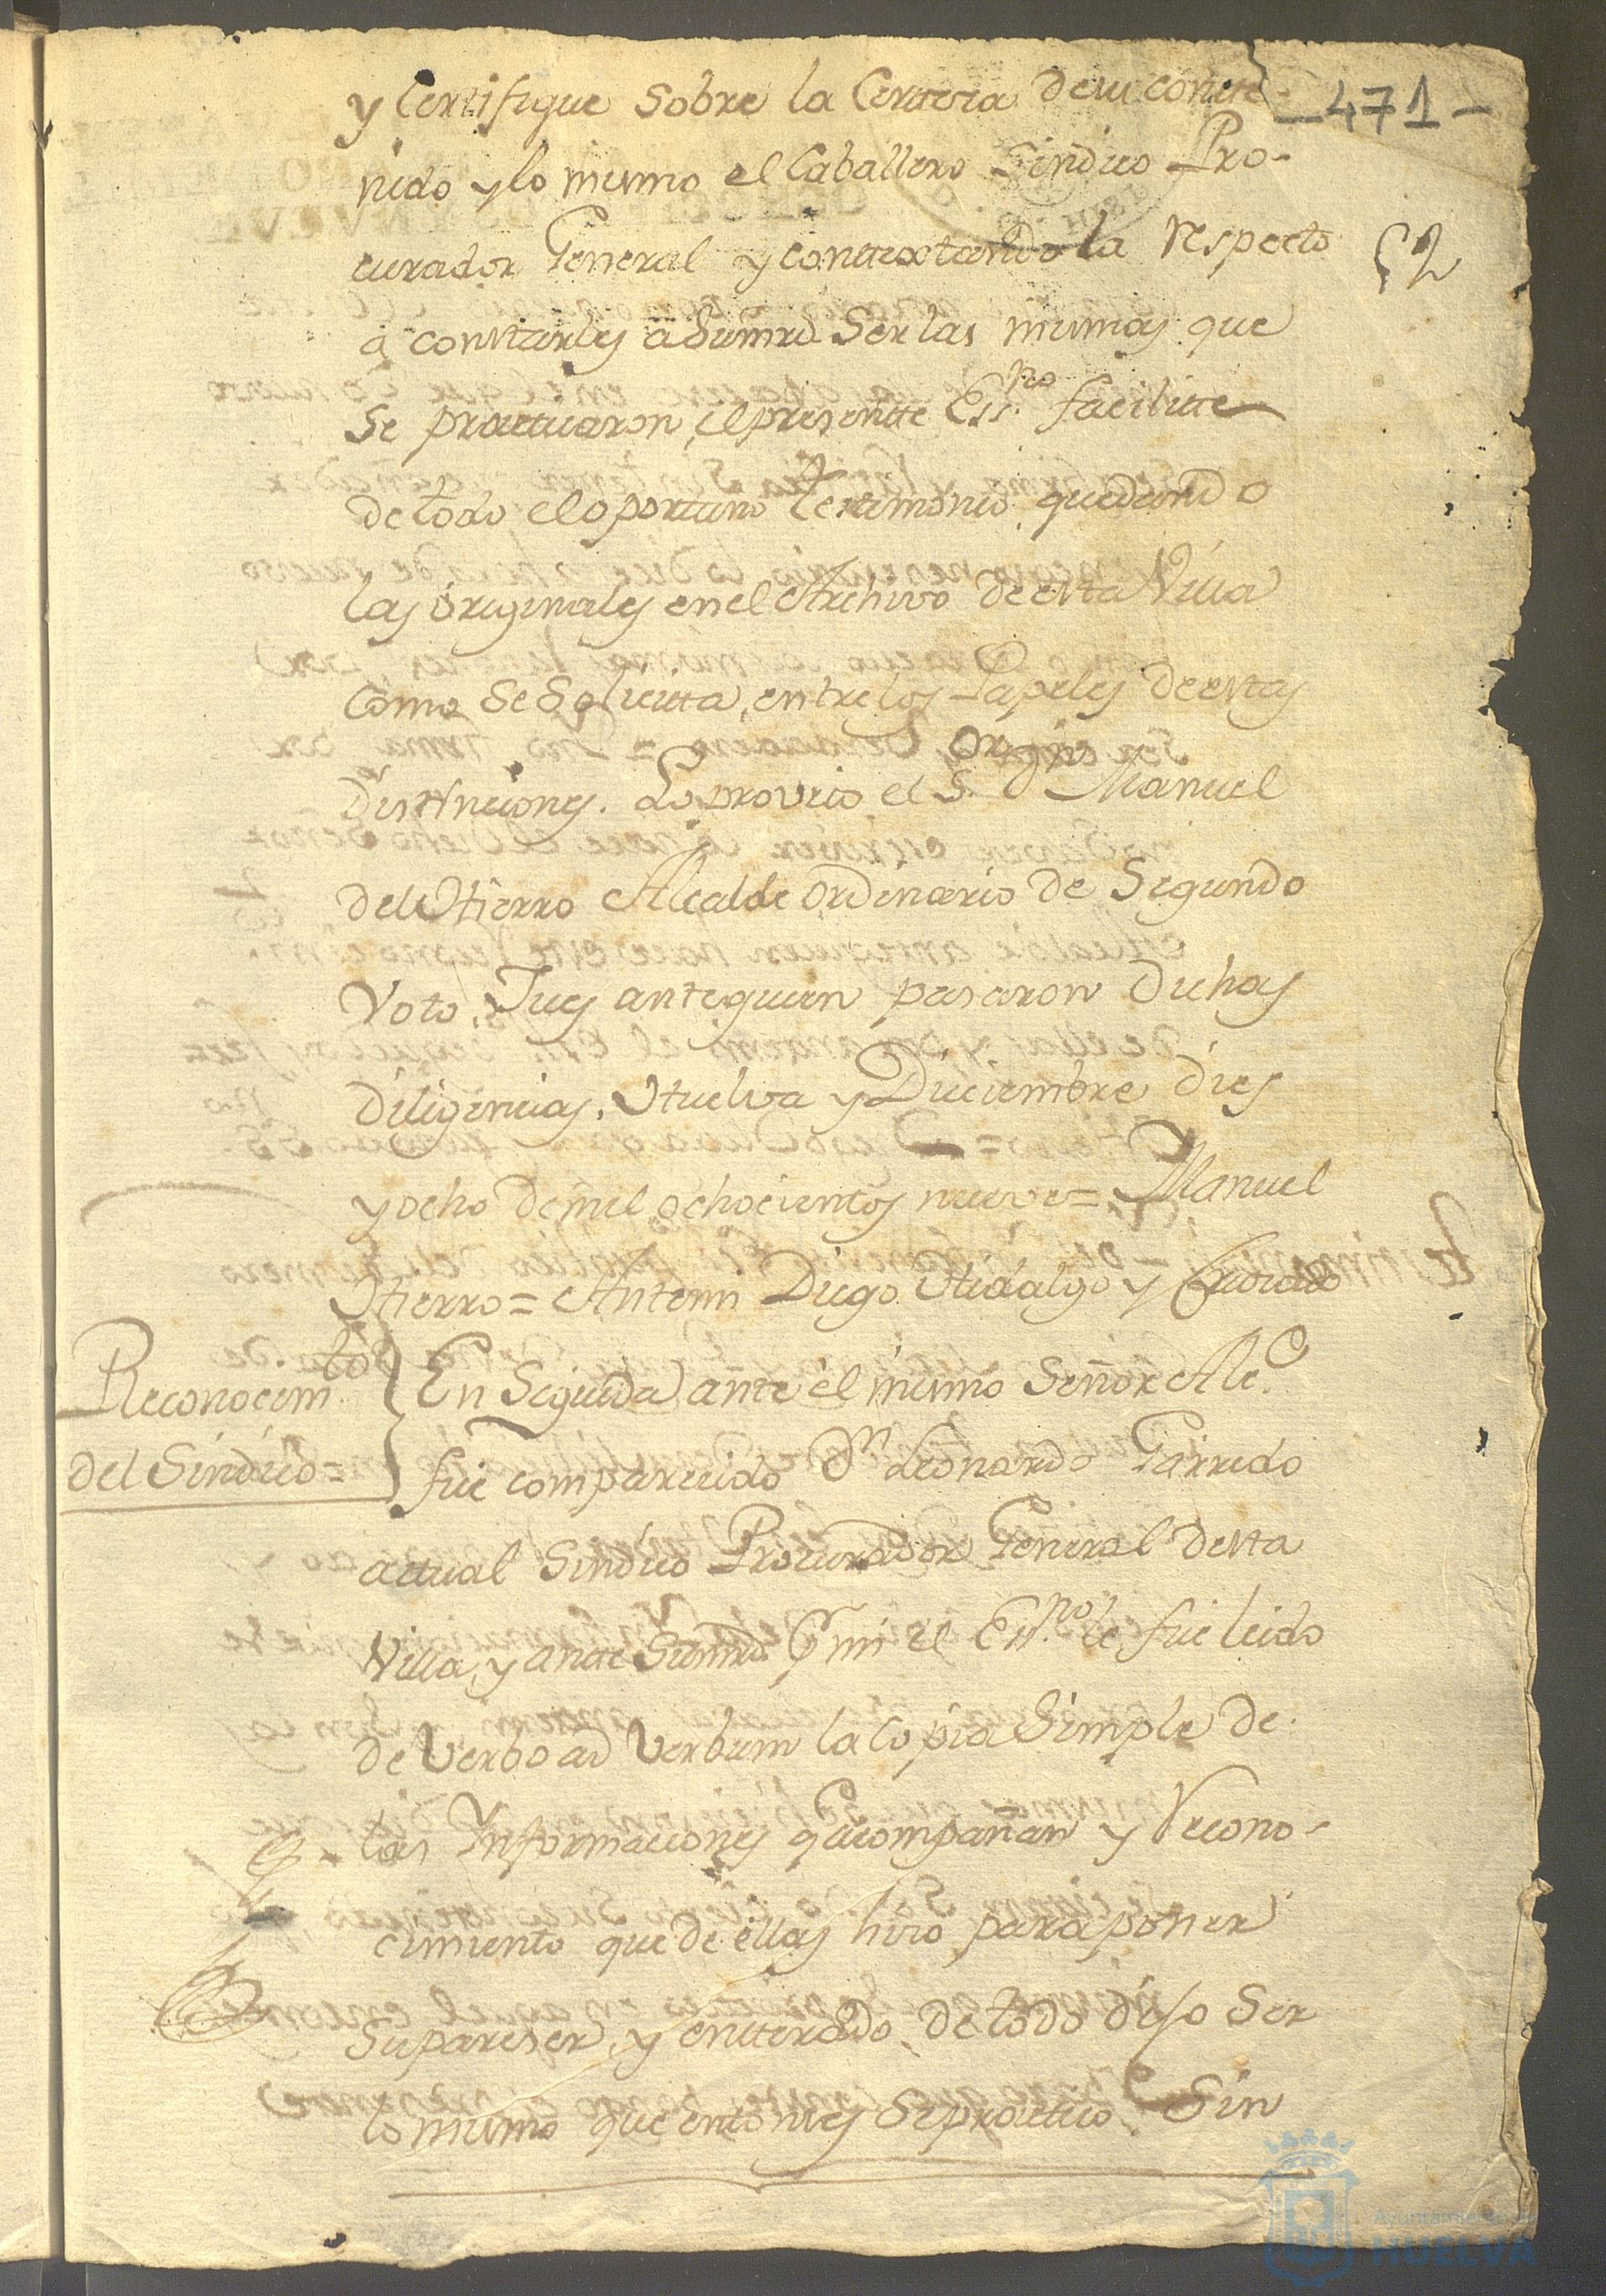 y Certifique sobre la Certeza de su conte-
- 471 -
nido y lo mismo el Caballero Sindico Pro-
curador General y contextandola respecto
52
a constarles a Sumrd. Ser las mismas que
Se practicaron, el presente Ess.no facilite
de todo el oportuno Testimonio quedando
las originales en el Archivo de esta Villa
como Se Solicita, entre los Papeles de estas
Distinciones. Lo proveio el S.or Dn Manuel
del Hierro Alcalde ordinario de Segundo
Voto, Jues ante quien pasaron dichas
diligencias. Huelva y Diciembre dies
y ocho de mil ochocientos nueve = Manuel
Hierro = Antemi Diego Hidalgo y
Reconocim.to
del Sindico =
En Seguida ante el mismo Señor Alc.e
fue comparecido Dn Leonardo Garrido
actual Sindico Procurador General desta
Villa, y ante Sumrd. y mi el Ess.no le fue leido
de Verbo ad Verbum la copia Simple de
las Informaciones q acompañan y recono-
cimiento que de ellas hizo para poner
Su pareser, y enterado de todo dijo Ser
lo mismo que entonces Se practico Sin
Ayuntamiento de
HUELVA